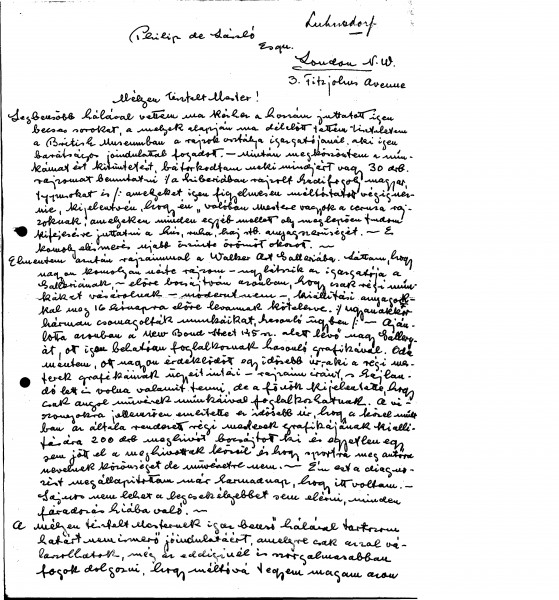 Luhnsdorf
Philip de László
Esqu.
London N.W.
3. Fitzjohns Avenue
Mélyen tisztelt Mester!
Legbensőbb hálával vettem ma kézhez a hozzám juttatott igen
becses sorokat, a melyek alapján ma délelőt tettem tiszteletem
a British Museumban a rajzok osztálya igazgatójánál, aki igen
barátságos jóindulattal fogadott. — Miután megköszöntem a
kitüntetést, bátorkodtam neki mindjárt vagy 30 drb.
rajzomat bemutatni /: a hiberiában rajzolt hadifogoly magyar
typusokat is /: amelyeket igen figyelmesen méltóztatott végig
nie, kijelentvén, hogy én valóban Mestere vagyok a ceruza raj-
zoknak, amelyeken minden egyéb mellett oly meglepően tudom
kifejezésre juttatni a hús, ruha, haj stb. anyagszerűségét. — E
komoly elismerés ujabb őszinte örömöt okozott. —
Elmentem azután rajzaimmal a Walker Art Galleriába. Láttam, hogy
nagyon komolyan nézte rajzom — ugylátszik az igazgatója a
Galleriának — előre bocsájtván azonban, hogy csak régi mű-
vüket vásárolnak — modernt nem —, kiállitási anyagok-
kal meg 16 hónapra előre lévannak kötelezve. /: ugyanakkor
hárman csomagolták munkáikat, hasonló ügyben /: — Aján-
lotta azonban a New Bond Street 148 n. alatt lévő nagy Galleri-
át, ot igen behatóan foglalkoznak hasonló grafikával. Oda
mentem, ot nagyon érdeklődöt egy idősebb úr, aki a régi mes-
terek grafikáinak ügyeit intézi — rajzaim iránt, s hajlan-
dó lett is volna valamit tenni, de a főnök kijelentette, hogy
csak angol művészek munkáival foglalkozhatnak. A vi-
szonyokra jellemzően emlitette az idősebb úr, hogy a közel múlt-
ban az általa rendezett régi mesterek grafikájának kiálli-
tására 200 drb meghivót bocsájtot ki és egyetlen egy
sem jött el a meghivottak közül és hogy sportra meg autóra
vannak közönséget de művészetre nem. — Én ezt a diagno-
zist megállapitottam már harmadnap, hogy itt voltam. —
Sajnos nem lehet a legcsekélyebbet sem elérni, minden
fáradozás hiába való. —
A mélyen tisztelt Mesternek igaz belső hálával tartozom
határt nem ismerő jóindulatáért, amelyre csak azzal vá-
laszolhatok, még az eddiginél is szorgalmasabban
fogok dolgozni, hogy méltóvá tegyem magam azon